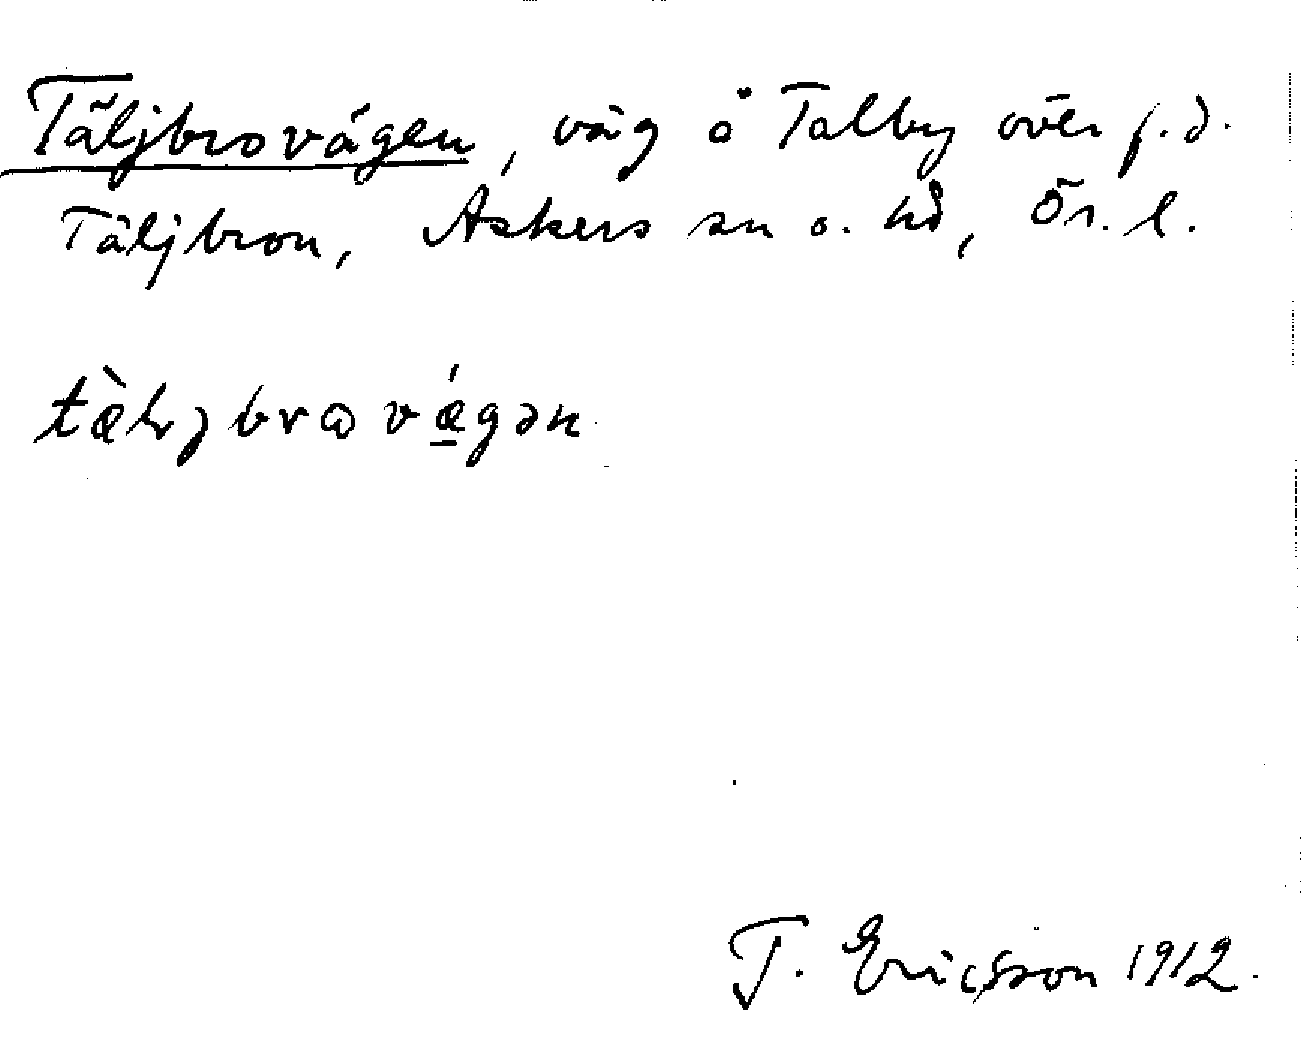 Täljbrovägen, väg å Talby över f.d.
Täljbron, Askers sn o. hd, Ör. l.
tæ̀ljbrωvǽ̱gən
T. Ericsson 1912.